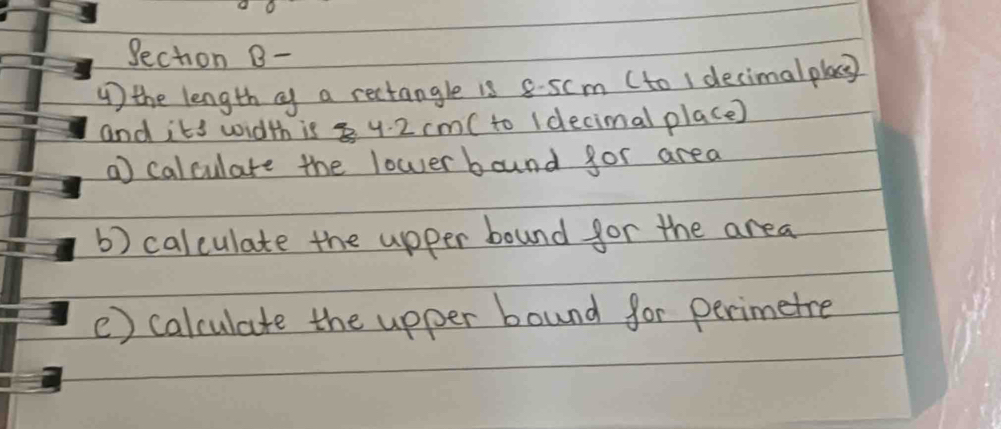 Section B-
4) the length of a rectangle is 8.5cm (to 1 decimal place)
and its width is 4.2 cm (to 1 decimal place)
a) calculate the lower bound for area
b) calculate the upper bound for the area
c) calculate the upper bound for perimetre